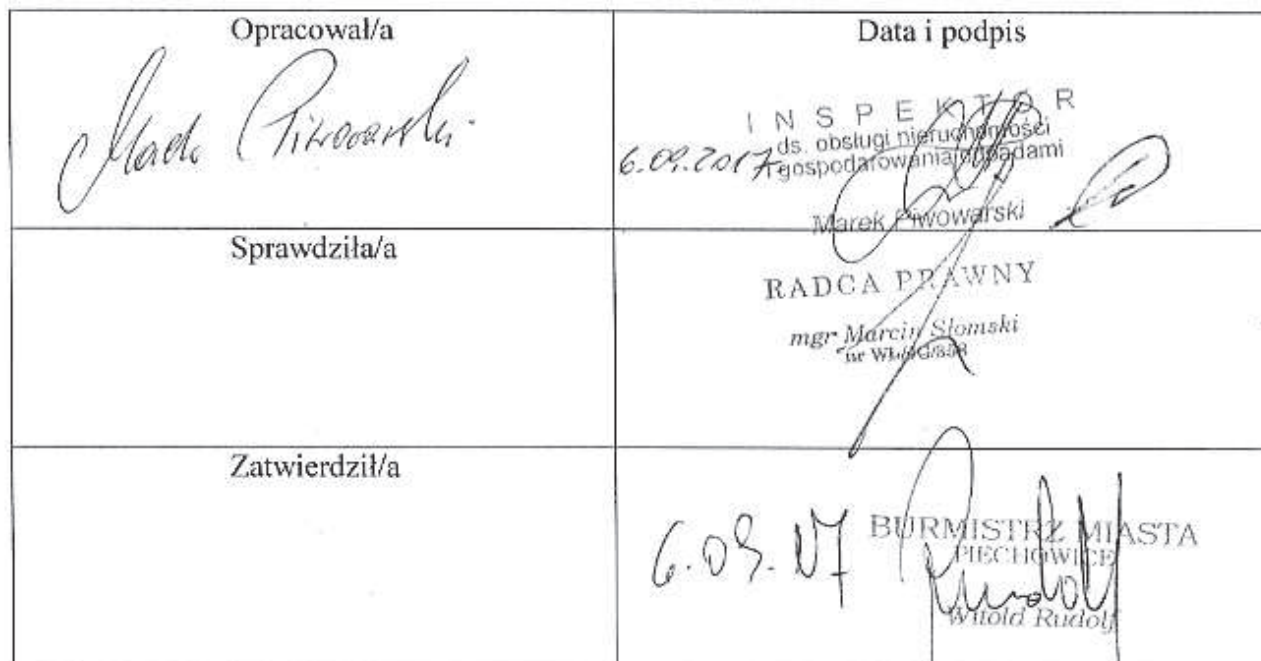 Opracował/a
Data i podpis
Marek Piwowarski
6.09.2017
INSPEKTOR
ds. obsługi nieruchomości
i gospodarowania odpadami
Marek Piwowarski
Sprawdziła/a
RADCA PRAWNY
mgr Marcin Słomski
nr WŁ/
Zatwierdził/a
6.09.17
BURMISTRZ MIASTA
PIECHOWICE
Rudolf
Witold Rudolf